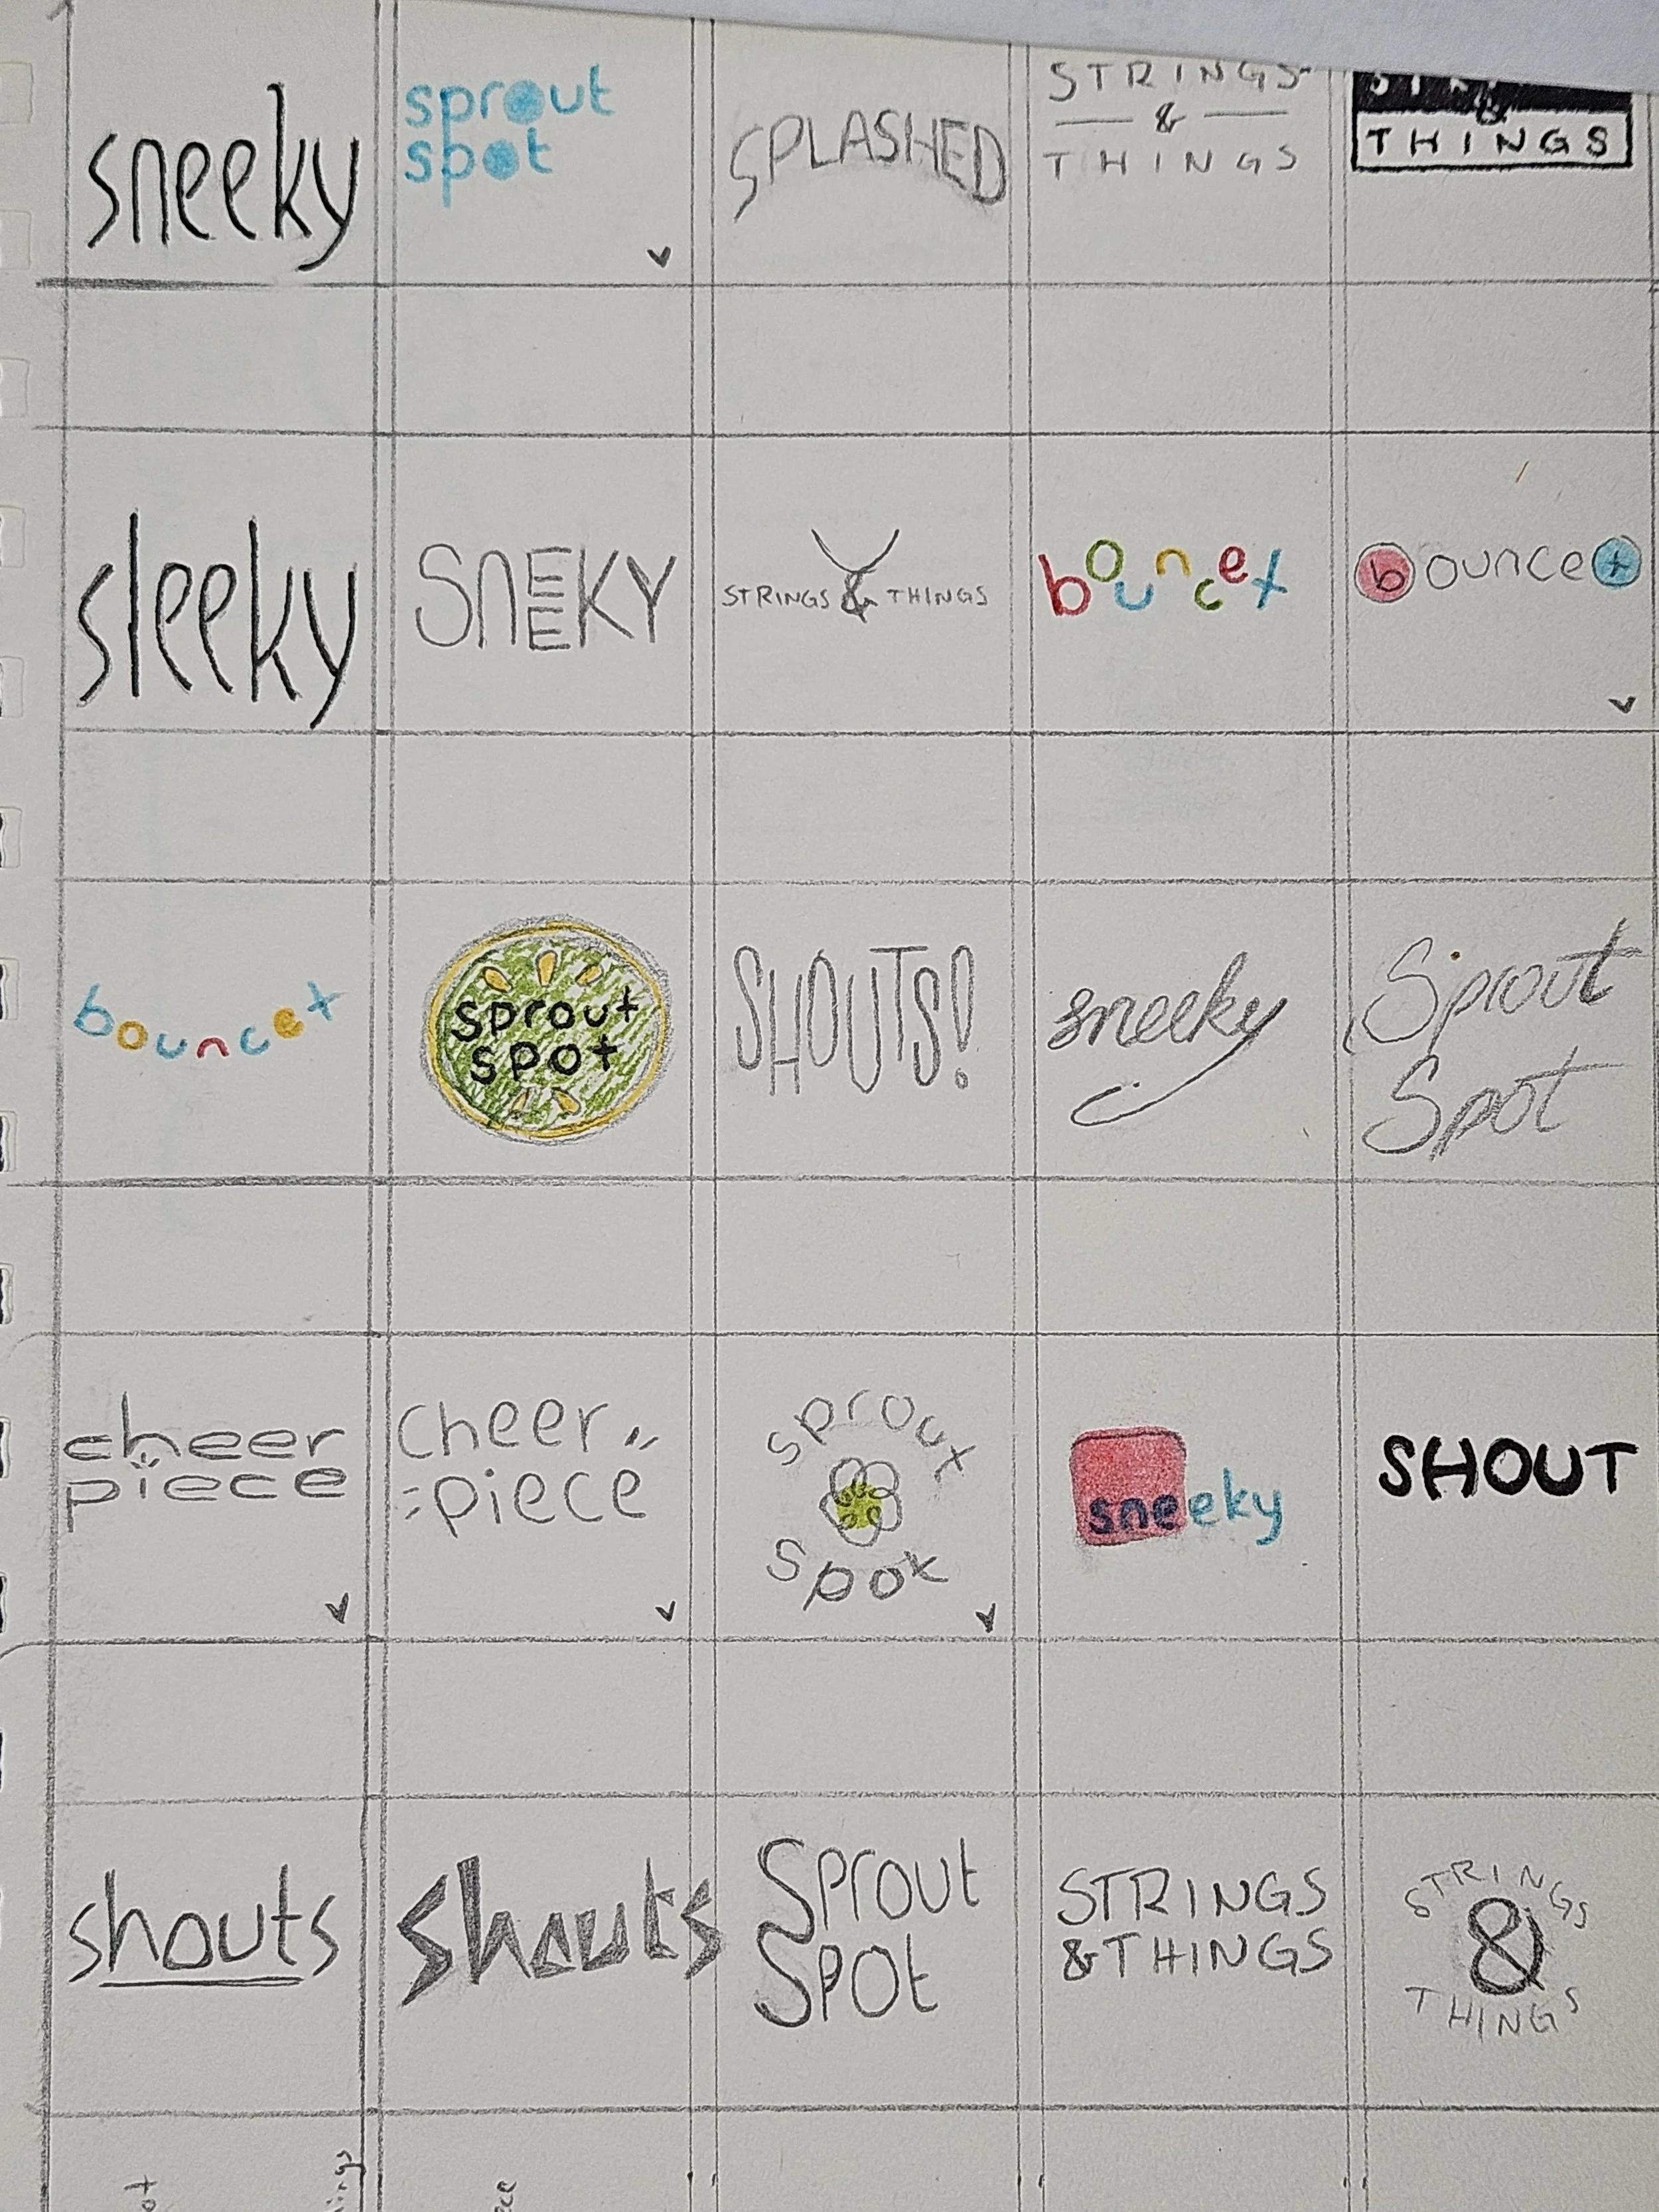 sneeky
sprout
spot
SPLASHED
STRINGS
&
THINGS
THINGS
sleeky
SNEEKY
STRINGS & THINGS
bouncet
bouncet
bouncet
sprout
spot
SHOUTS!
sneeky
Sprout
Spot
cheer
piece
cheer
piece
sprout
spot
sneeky
SHOUT
shouts
shouts
SPROUt
SPOt
STRINGS
& THINGS
STRINGS
&
THINGS